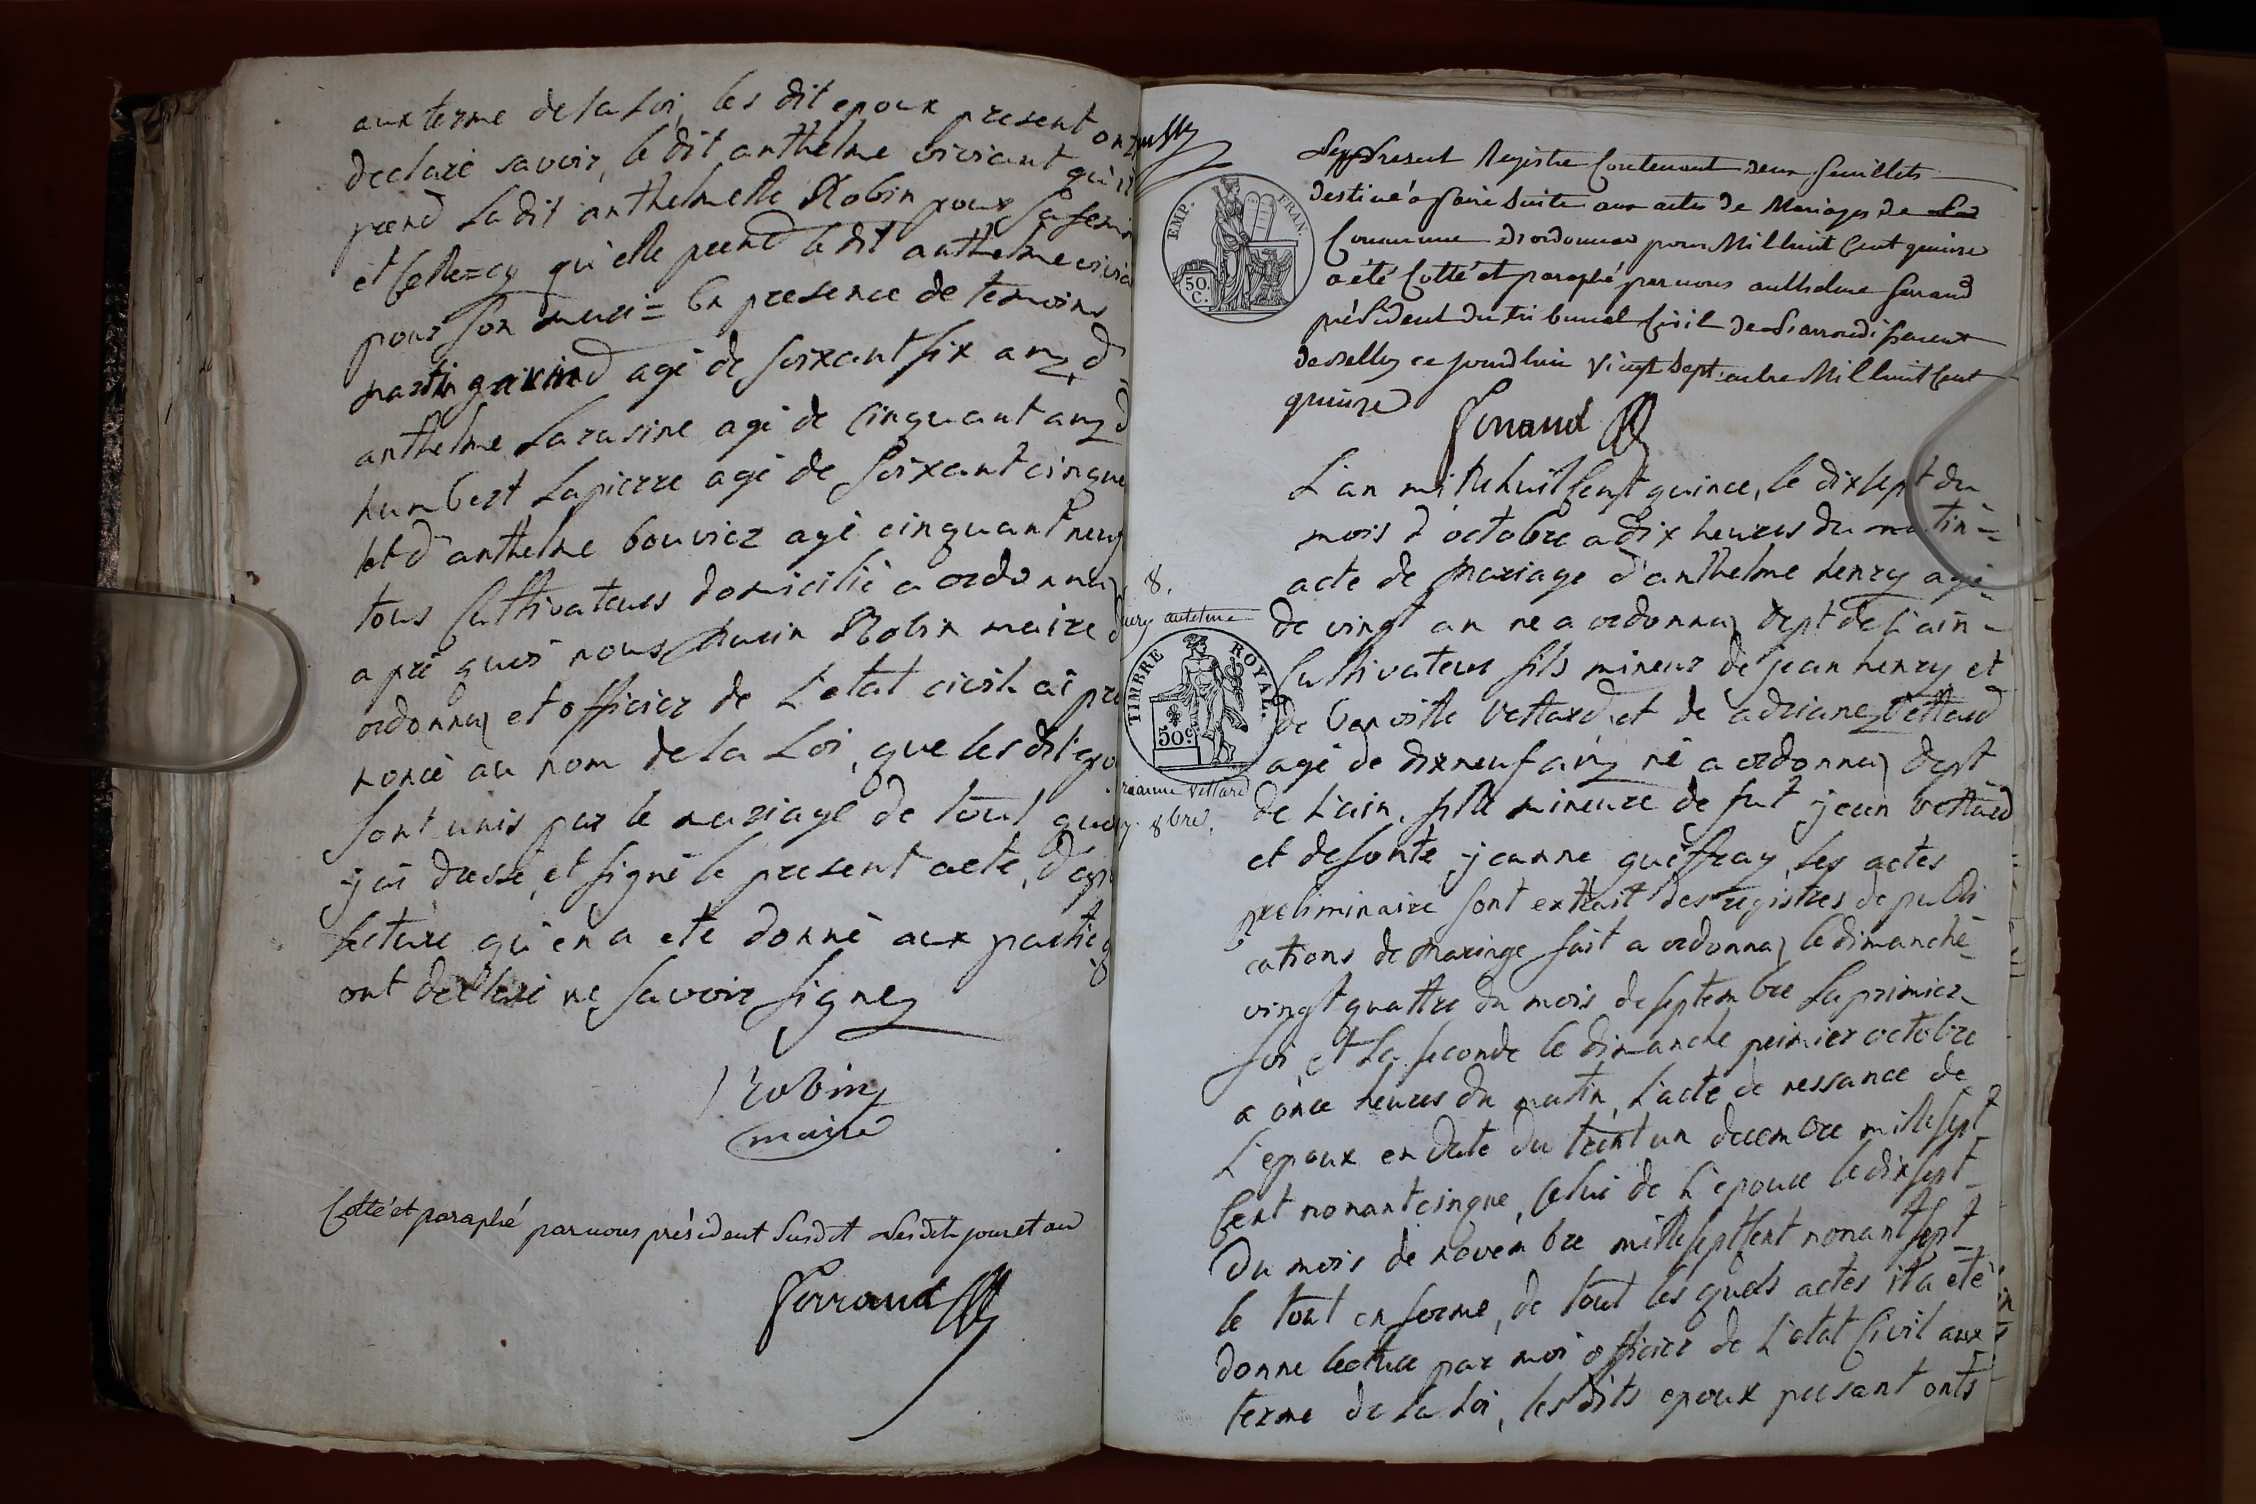 aux terme de la Loi, les dit epoux present ont
declaré savoir, le dit anthelme viviant qu'il
prend La dit anthelmette Robin pour sa femme
et celle=cy qu'elle prend le dit anthelme vivia
pour son mari= En presence de temoins
martin d agé de soixant six anz d
anthelme Larasine agé de cinquant anz d
humbert Lapierre agé de soixant cinque
et d'anthelme bouvier agé cinquant neuf
tous cultivateurs domicilié a ordonnaz
apré quoi nous Robin maire d
ordonnaz et officier de L'etat civil ai pro
noncé au nom de la Loi, que les dit epo
sont unis par le mariage de tout quoi
j'ai dressé, et signé le present acte, d'apr
lecture qu'en a eté donné aux partie
ont declaré ne savoir signez
Robin
maire
Cotté et paraphé par nous président susdit Lesdits jour et an
Ferrand
Le present Registre Contenant deux feuillets
destiné á faire Suite aux actes de Mariages de La
Commune d'ordonnas pour Mil huit Cent quinze
a été Cotté et paraphé par nous anthelme ferrand
président du tribunal Civil de L'arrondissement
de Belley ce jourd'hui vingt Septembre Mil huit Cent
quinze
Ferrand
EMP. FRAN.
50. C.
8.
henry antelme
TIMBRE ROYAL.
50 c
vettard
8bre.
L'an mille huit cent quince, le dix sept du
mois d'octobre a dix heures du matin=
acte de Mariage d'anthelme henry agé
de vingt an ne a ordonnaz dept de L'ain
Cultivateur fils mineur de jean henry et
de benoitte vettard et de adriane vettard
agé de dix neuf anz né a ordonnaz dept
de L'ain, fille mineure de fut jean vettard
et defonte jeanne gueffray, les actes
preliminaire sont extrait des registres de publi
cations de Mariage fait a ordonnaz le dimanche
vingt quattre du mois de septembre La primier
foi, et La seconde le dimanche primier octobre
a once heures du matin, L'acte de nessance de
L'epoux en date du trent un decembre mille sept
Cent nonant cinque, celui de L'epouse le dix sept
du mois de novembre mille sept Cent nonant sept
le tout en forme, de tout les quels actes il a eté
donne lecture par moi officier de L'etat Civil aux
terme de La Loi, les dits epoux presant onts